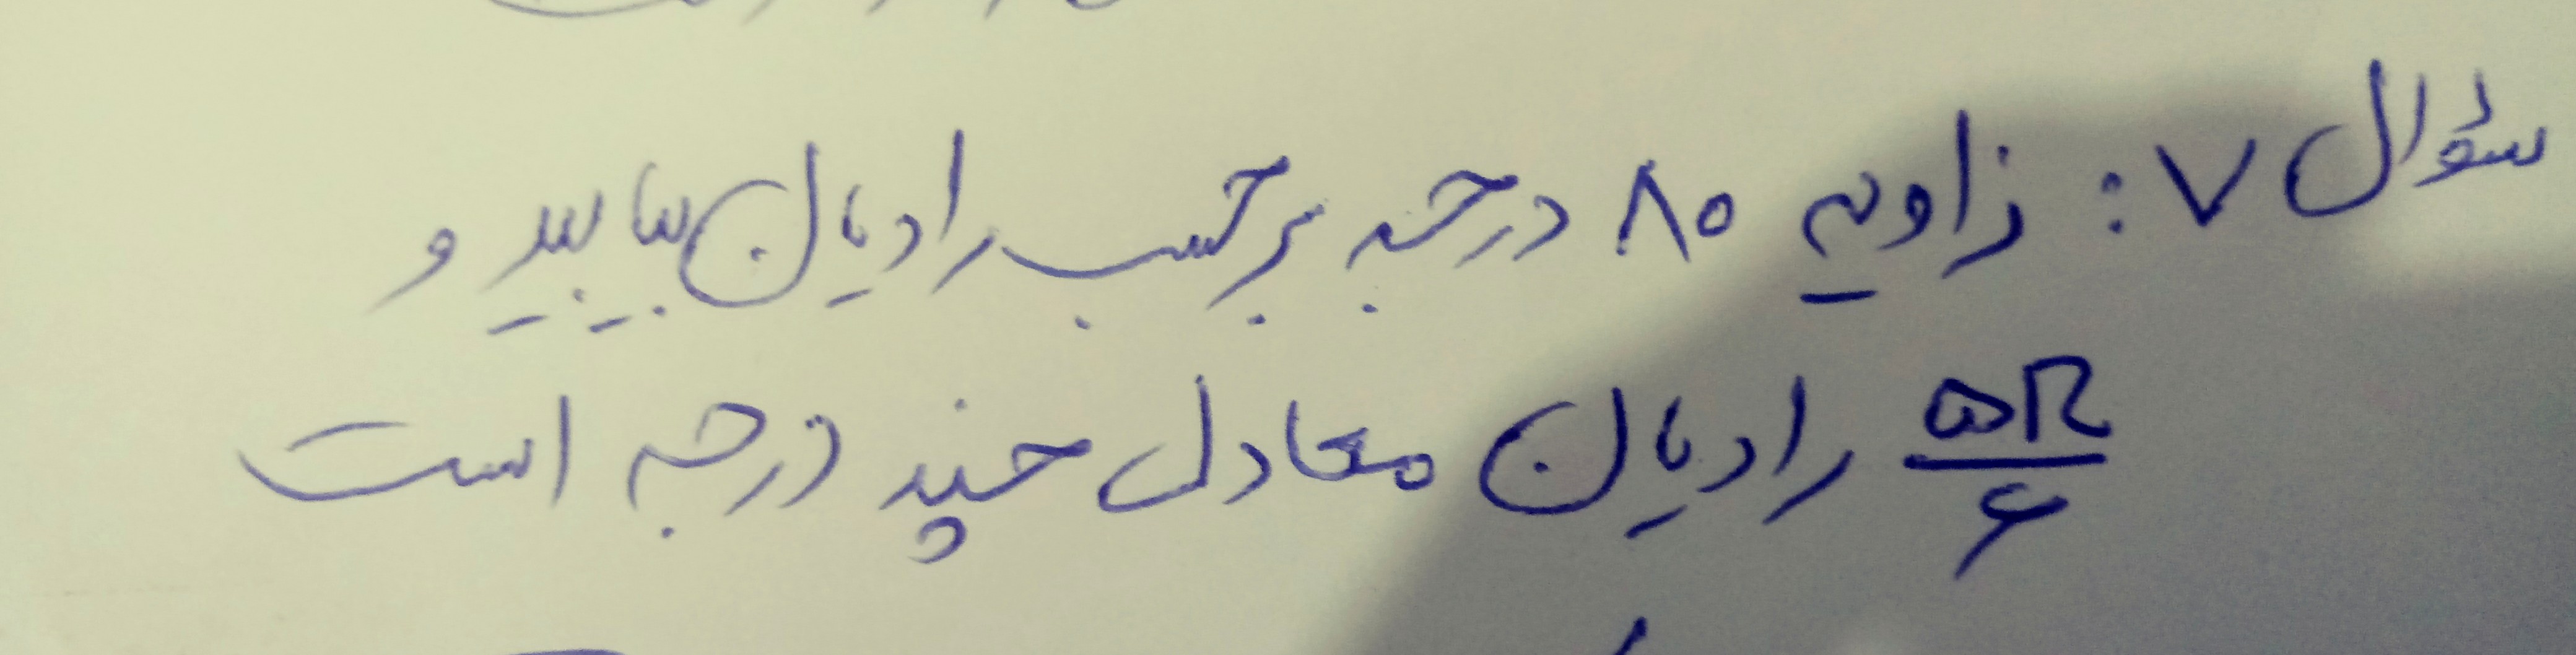 سؤال ۷: زاویه ۸۰ درجه برحسب رادیان بیابید و
۵π/۶ رادیان معادل چند درجه است